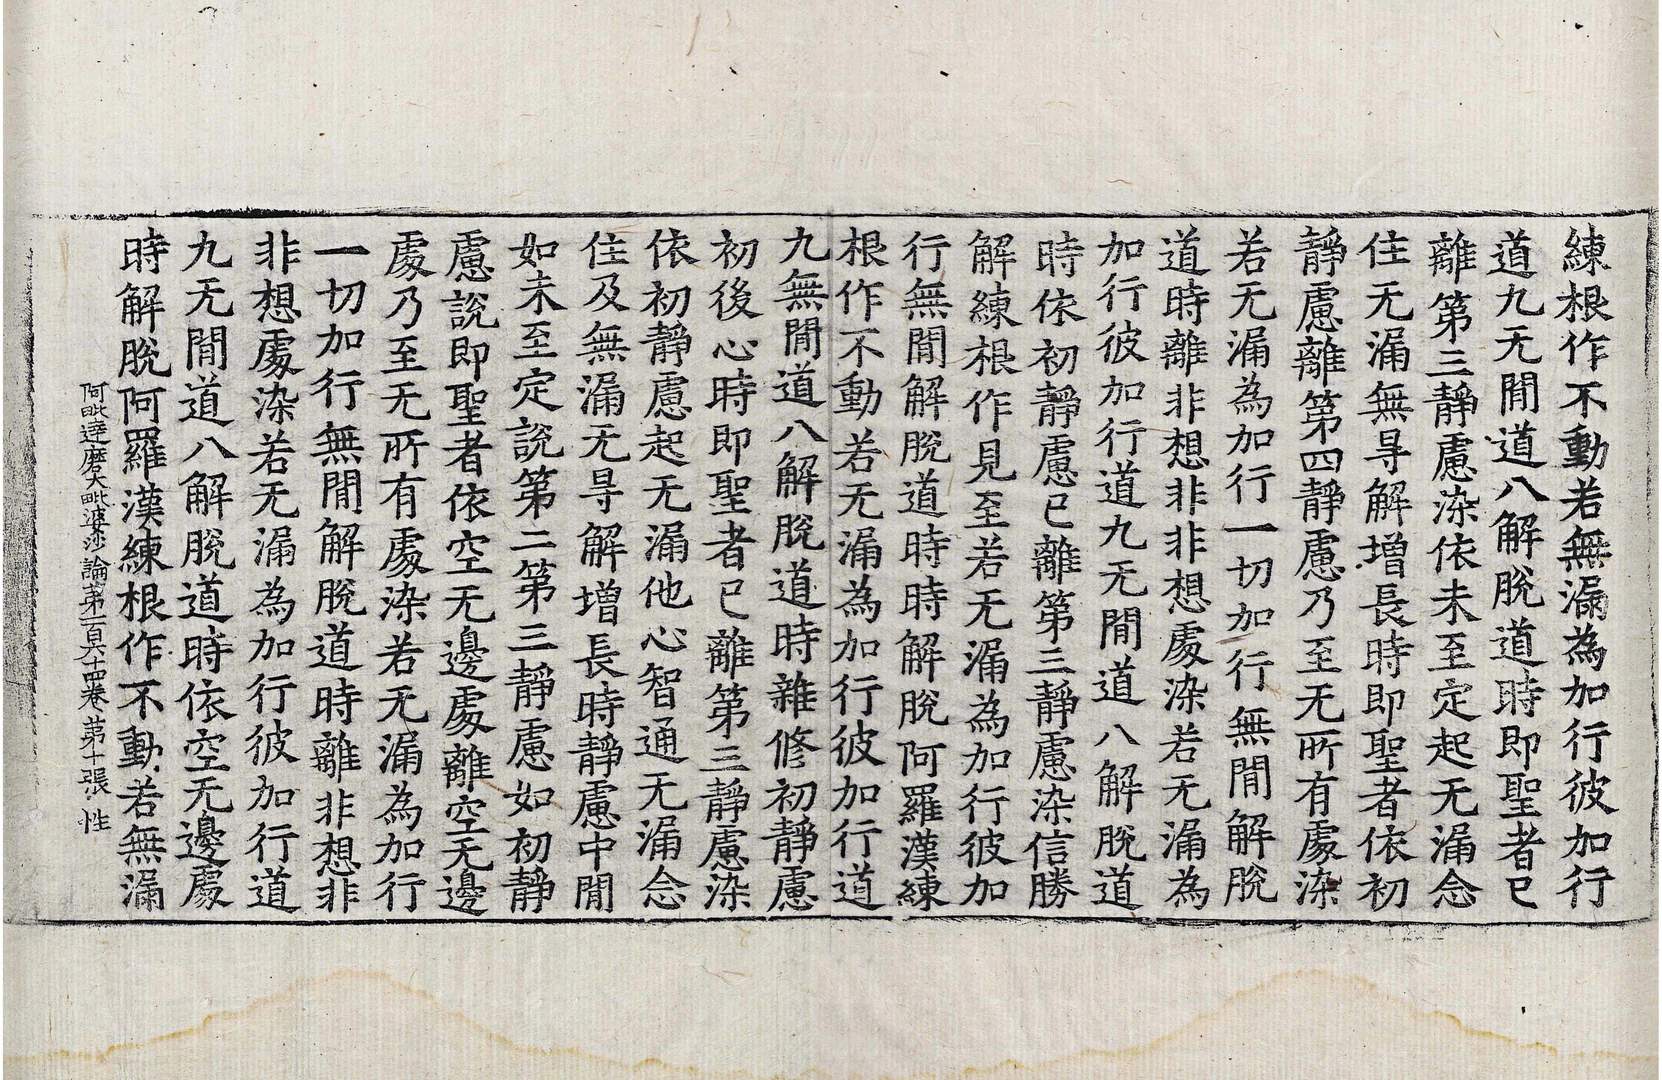 練根作不動若無漏為加行彼加行
道九无閒道八解脫道時即聖者已
離第三靜慮染依未至定起无漏念
住无漏無㝵解增長時即聖者依初
靜慮離第四靜慮乃至无所有處染
若无漏為加行一切加行無閒解脫
道時離非想非非想處染若无漏為
加行彼加行道九无閒道八解脫道
時依初靜慮已離第三靜慮染信勝
解練根作見至若无漏為加行彼加
行無閒解脫道時時解脫阿羅漢練
根作不動若无漏為加行彼加行道
九無閒道八解脫道時雜修初靜慮
初後心時即聖者已離第三靜慮染
依初靜慮起无漏他心智通无漏念
住及無漏无㝵解增長時靜慮中閒
如未至定說第二第三靜慮如初靜
慮說即聖者依空无邊處離空无邊
處乃至无所有處染若无漏為加行
一切加行無閒解脫道時離非想非
非想處染若无漏為加行彼加行道
九无閒道八解脫道時依空无邊處
時解脫阿羅漢練根作不動若無漏
阿毗達磨大毗婆沙論第一百六十四卷 第十張 性